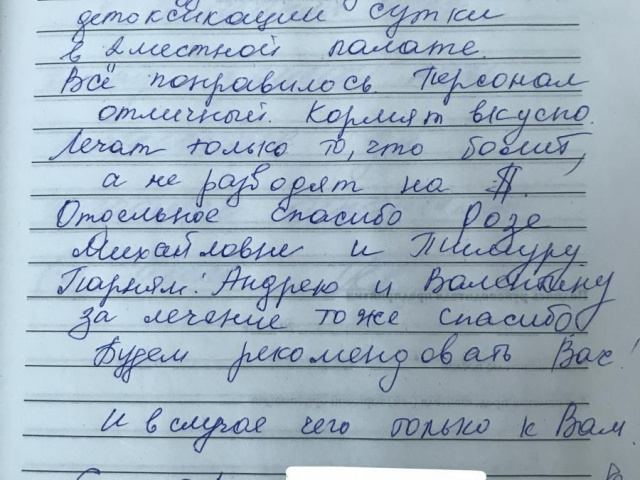 детоксикации сутки
в 2 местной палате.
Всё понравилось. Персонал
отличный. Кормят вкусно.
Лечат только то, что болит,
а не разводят на
Отдельное спасибо Розе
Михайловне и Тимуру
Парням: Андрею и Валентину
за лечение тоже спасибо
Будем рекомендовать Вас!
И в случае чего только к Вам.